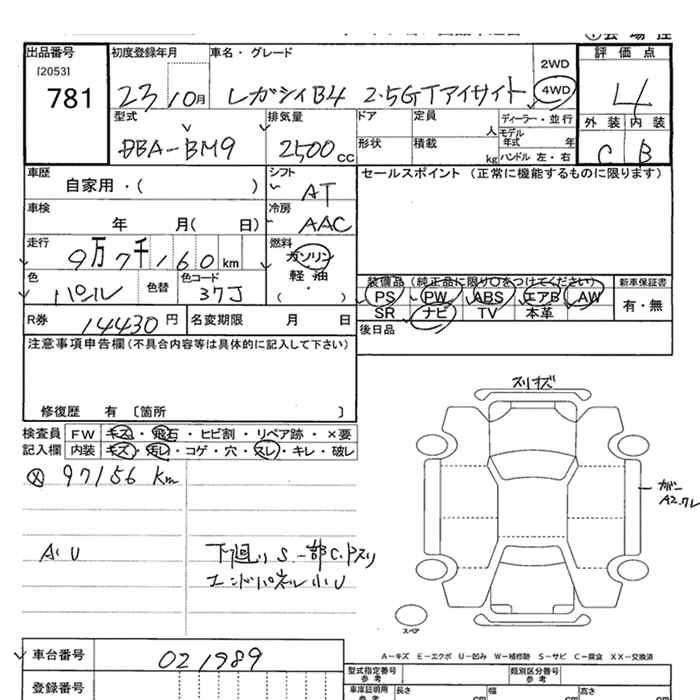 出品番号
[2053]
781
初度登録年月
23 10月
車名・グレード
レガシィB4 2.5GTアイサイト
2WD
4WD
評価点
4
型式
DBA-BM9
排気量
2500cc
ドア
定員
人
ディーラー・並行
モデル年式 年
形状
積載
kg
ハンドル 左・右
外装 内装
C B
車歴
自家用・( )
シフト
AT
セールスポイント (正常に機能するものに限ります)
車検
年 月( 日)
冷房
AAC
走行
9万7千160km
燃料
ガソリン
軽・油
( ・ )
色
パール
色替
色コード
37J
装備品 (純正品に限り〇をつけてください)
PS PW ABS エアB AW
SR ナビ TV 本革
新車保証書
有・無
R券
14430円
名変期限 月 日
後日品
注意事項申告欄(不具合内容等は具体的に記入して下さい)
修復歴 有 〔箇所 〕
検査員 FW キズ・飛石・ヒビ割・リペア跡・×要
記入欄 内装 キズ・汚レ・コゲ・穴・スレ・キレ・破レ
97156 Km
A.U
下廻りS 一部C.下スリ
エンドパネル小U
スリキズ
ガリ
A2.ワレ
スペア
A-キズ E-エクボ U-凹み W-補修跡 S-サビ C-腐食 XX-交換済
車台番号
021989
登録番号
型式指定番号
参考
類別区分番号
参考
車庫証明用
参考
長さ cm
幅 cm
高さ cm